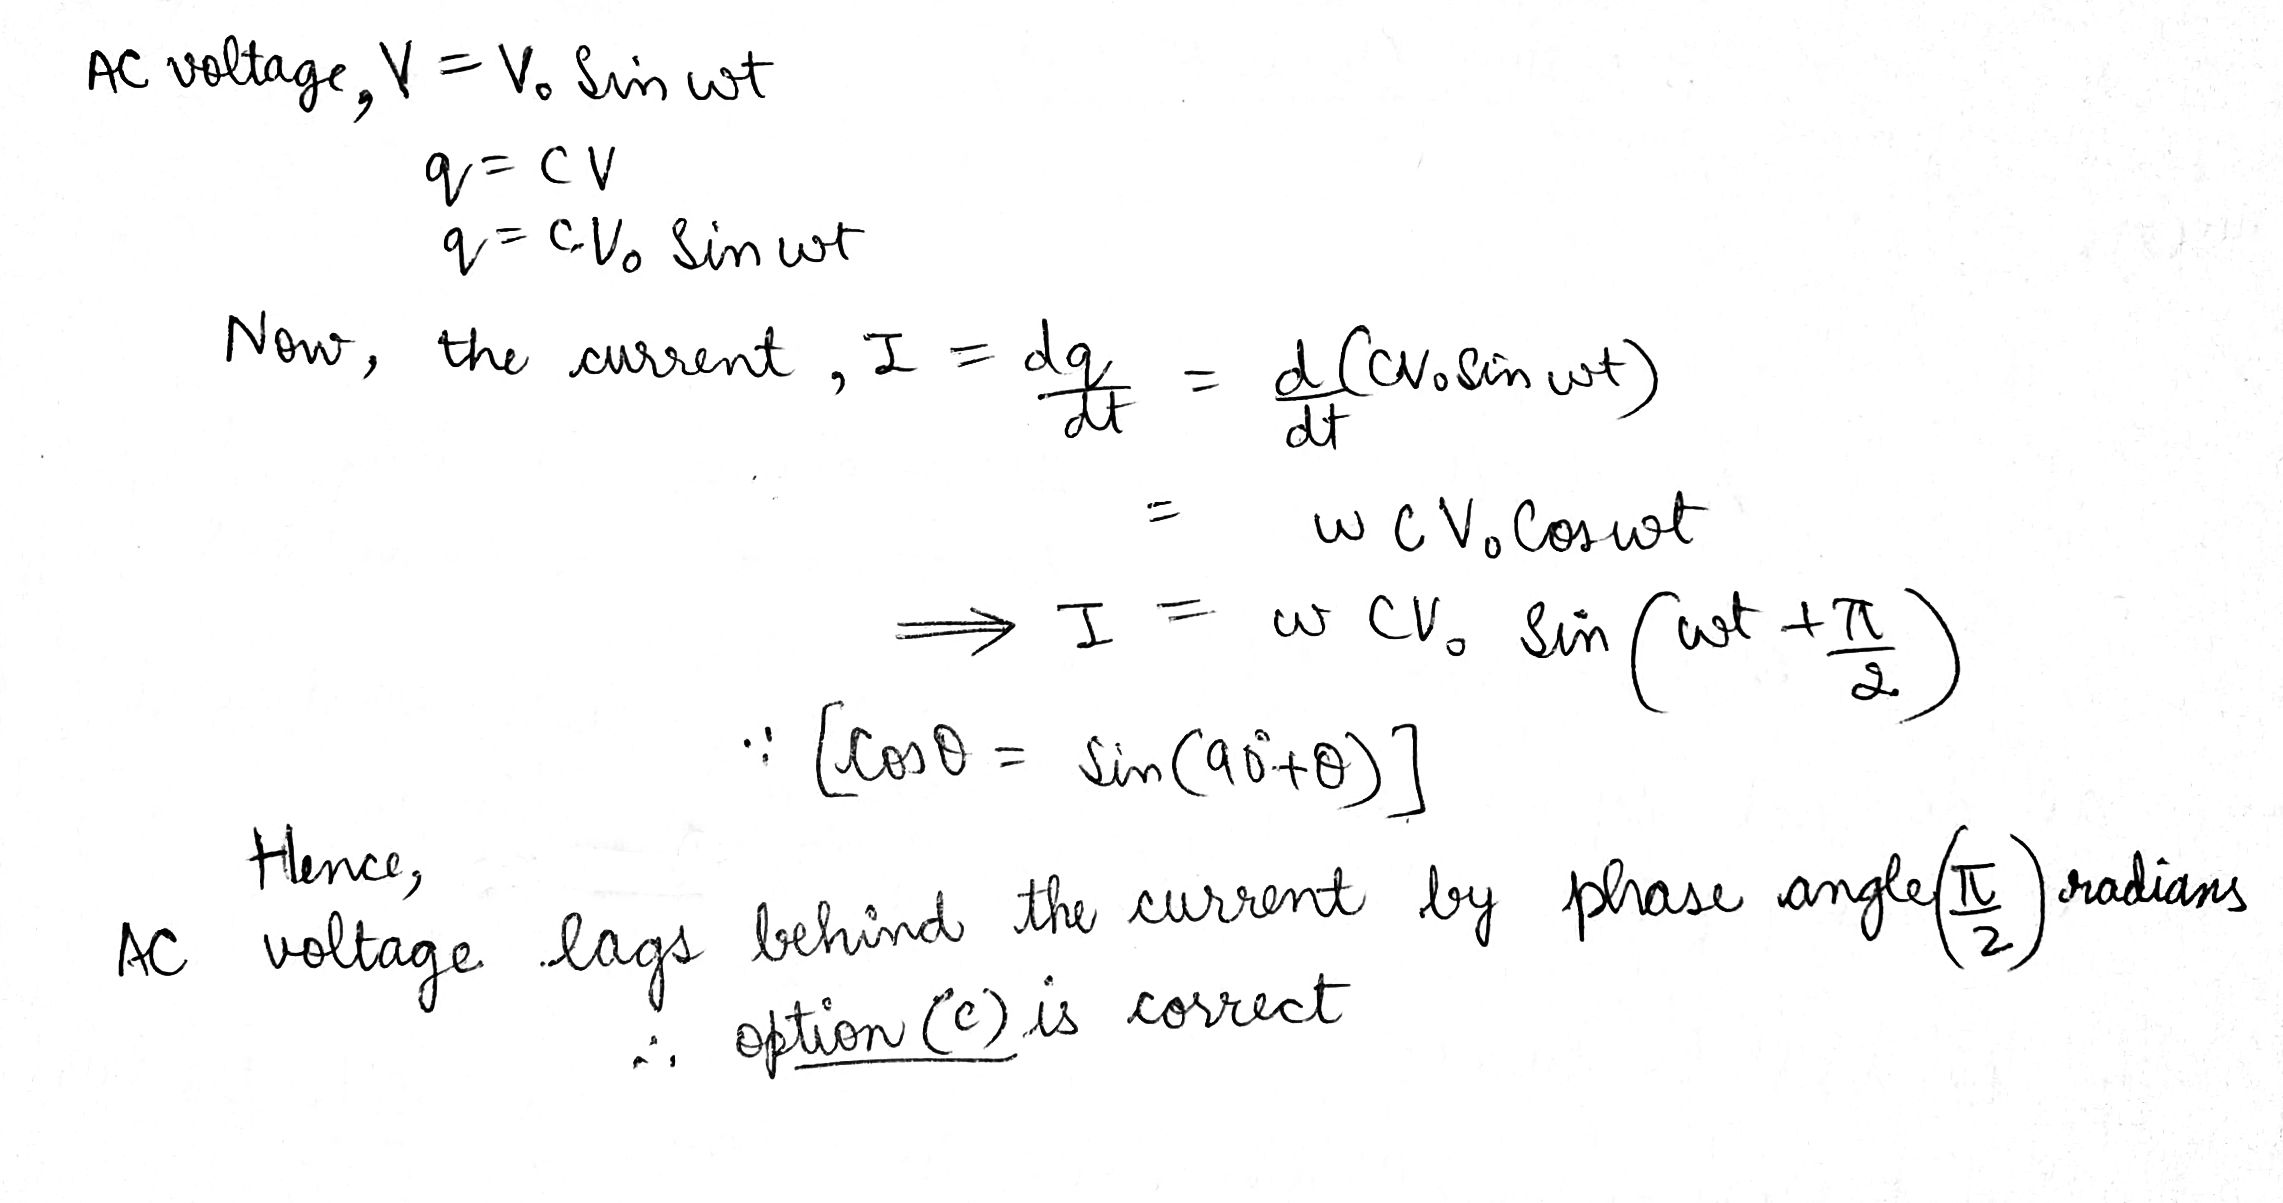 AC voltage, V = V₀ Sin wt
q = CV
q = CV₀ Sin wt
Now, the current, I = dq/dt = d/dt (CV₀ Sin wt)
= w C V₀ Cos wt
⟹ I = w CV₀ Sin (wt + π/2)
∵ [Cosθ = Sin(90°+θ)]
Hence,
AC voltage lags behind the current by phase angle (π/2) radians
∴ option (c) is correct